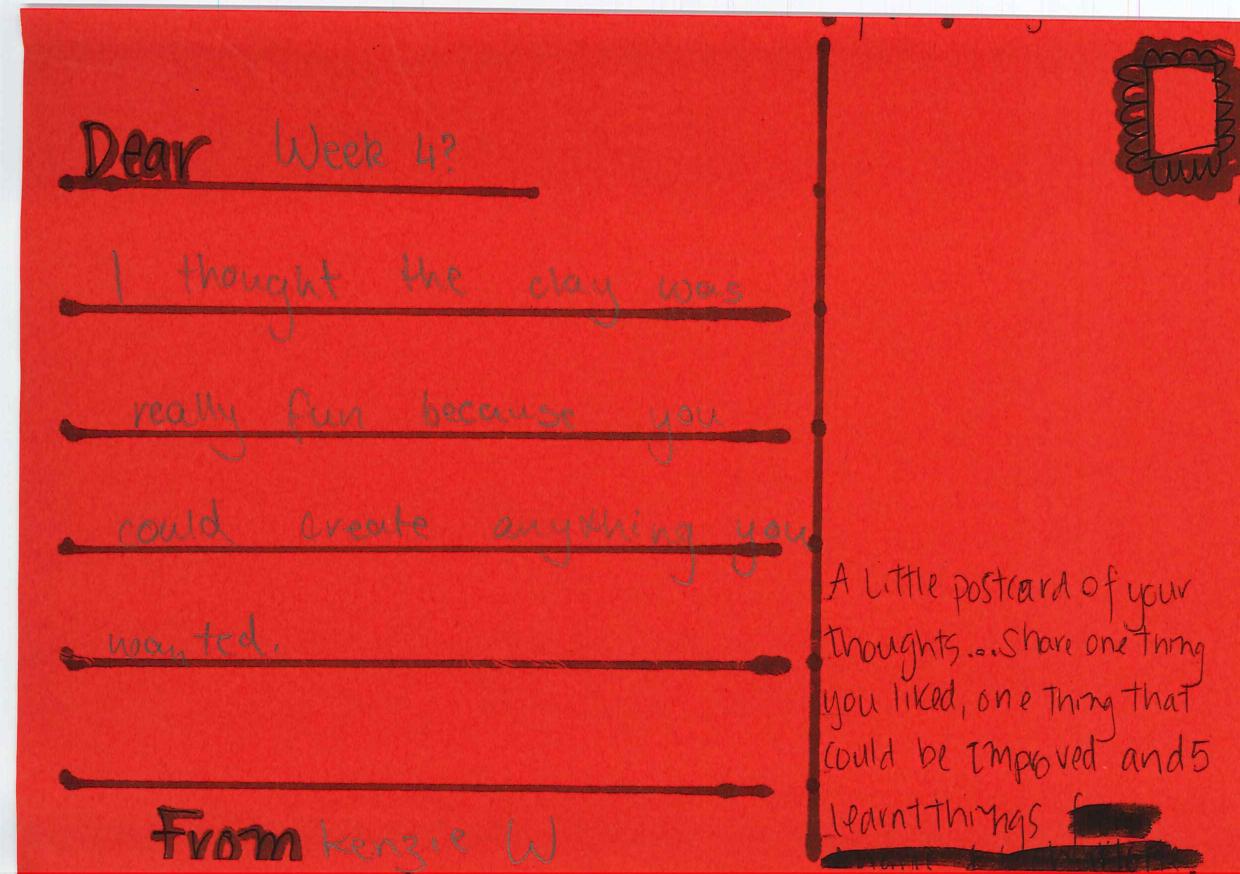 Dear Week 4?
I thought the clay was
really fun because you
could create anything you
wanted.
From Kenzie W
A Little postcard of your
thoughts...Share one thing
you liked, one thing that
could be improved and 5
learnt things